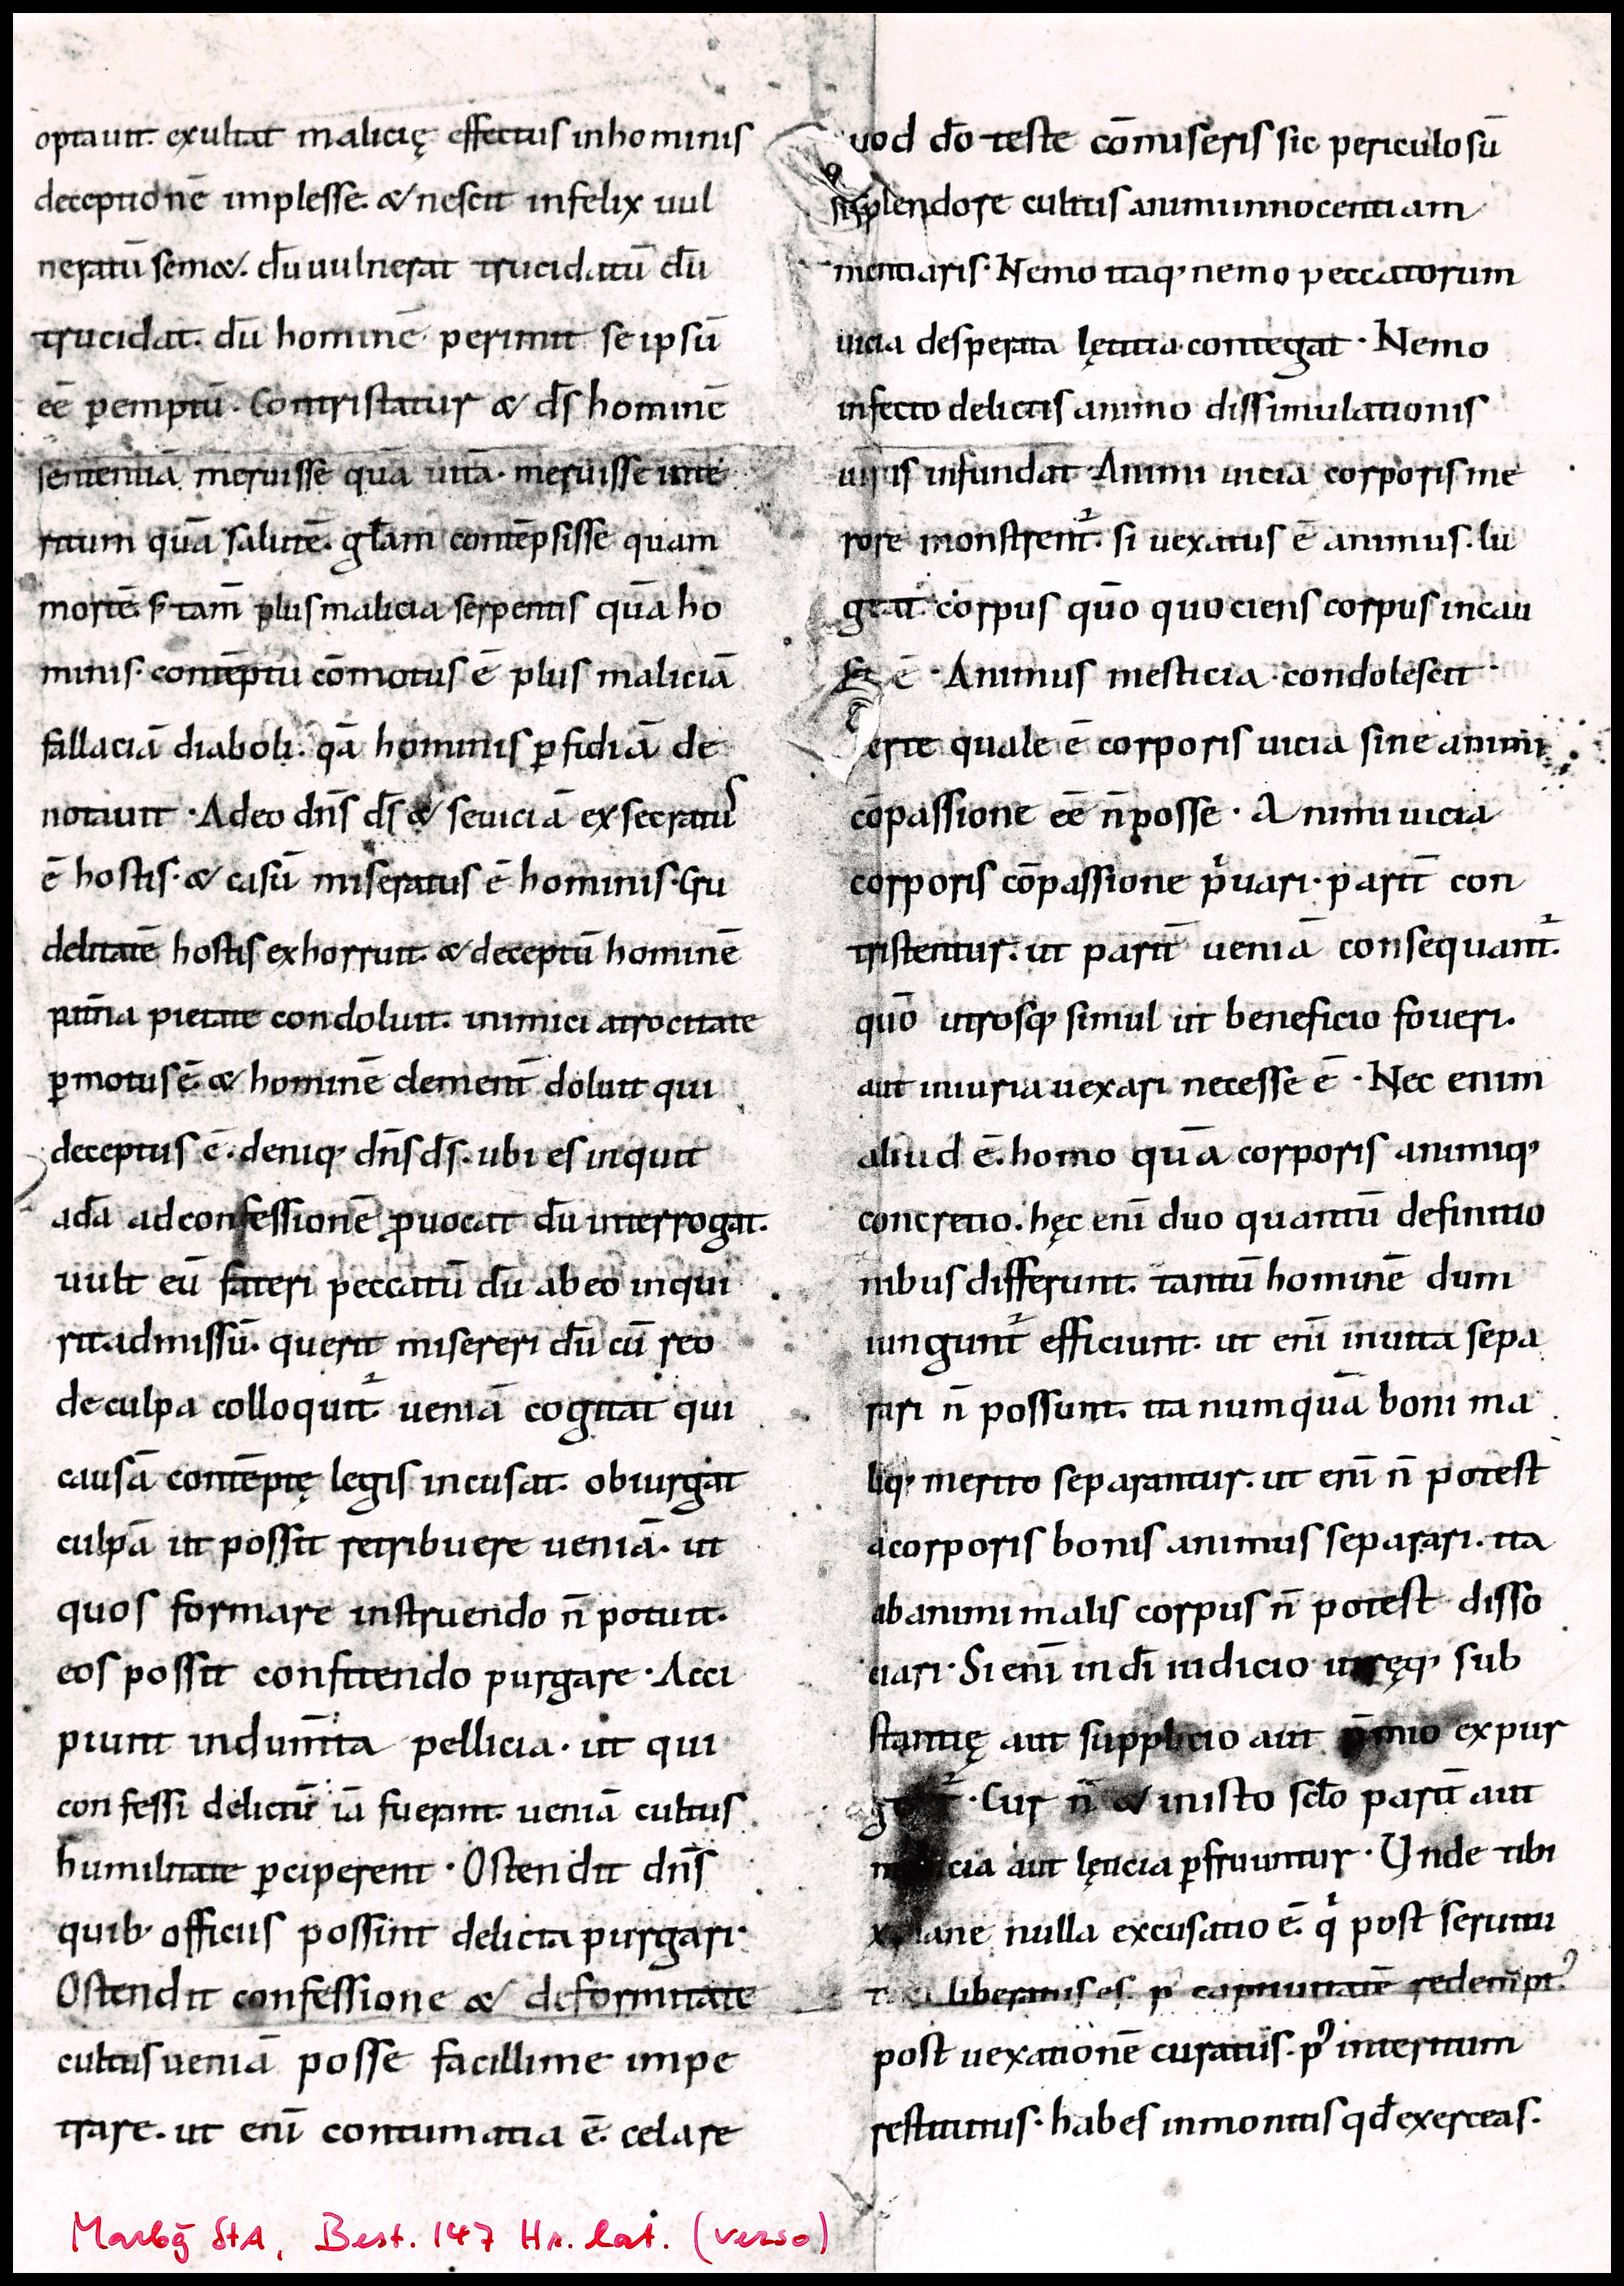 optauit. exultat malicię effectus inhominis
deceptionē implesse. & nescit infelix uul
neratū sem&. dū uulnerat trucidatū dū
trucidat. dū hominē perimit se ipsū
eē p̱emptū. Contristatur & ds̄ hominē
sententiā meruisse quā uitā. meruisse inte
ritum quā salutē. gl̄am contēpsisse quam
mortē. s; tam̄ plus malicia serpentis quā ho
minis. contēptu cōmotus ē plus maliciā
fallaciā diaboli. qā hominis ꝑfidiā de
notauit. Adeo dn̄s ds̄ & seuiciā exsecratus
ē hostis. & casū miseratus ē hominis. Cru
delitatē hostis exhorruit. & deceptū hominē
pat̄na pietate condoluit. inimici atrocitate
ꝑmotus ē. & hominē clement̄ doluit qui
deceptus ē. deniq; dn̄s ds̄. ubi es inquit
adā adconfessionē ꝓuocat dū interrogat.
uult eū fateri peccatū dū abeo inqui
rit admissū. querit misereri dū cū reo
de culpa colloquit᷑. ueniā cogitat qui
causā contēptę legis incusat. obiurgat
culpā ut possit retribuere ueniā. ut
quos formare instruendo n̄ potuit.
eos possit confitendo purgare. Acci
piunt indum̄ta pellicia. ut qui
confessi delictū iā fuerint. ueniā cultus
humilitate ꝑciperent. Ostendit dn̄s
quib; officiis possint delicta purgari.
Ostendit confessione & deformitate
cultus ueniā posse facillime impe
trare. ut eni᷑ contumatia ē. celare
uod dō teste cōmiseris sic periculosū
splendore cultus animi innocentiam
mentiaris. Nemo itaq; nemo peccatorum
uicia desperata lętitia contegat. Nemo
infecto delictis animo dissimulationis
uirus infundat. Animi uicia corporis me
rore monstrent᷑. si uexatus ē animus. lu
geat corpus quō quociens corpus incau
ē. Animus mesticia condolescit
erte quale ē corporis uicia sine animi
cōpassione eē n̄ posse. Animi uicia
corporis cōpassione pͥuari. parit̄ con
tristentur. ut parit̄ ueniā consequant᷑.
quō utrosq; simul ut beneficio foueri.
aut iniuria uexari necesse ē. Nec enim
aliud ē. homo quā corporis animiq;
concretio. hęc enī duo quantū definitio
nibus differunt. tantū hominē dum
iungunt᷑ efficiunt. ut enī inuita sepa
rari n̄ possunt. ita numquā boni ma
liq; merito separantur. ut enī n̄ potest
acorporis bonis animus separari. ita
abanimi malis corpus n̄ potest disso
ciari. Si enī in dī iudicio utręq; sub
stantię aut supplicio aut p̄mio expur
Cur n̄ & inisto sc̄lo parit̄ aut
aut lęticia ꝑfruuntur. Unde tibi
nulla excusatio ē. qͥ post seruitu
liberatus es. pꝰ captiuitatē redem̄ptꝰ
post uexationē curatus. pꝰ interitum
restitutus. habes inmonitis qđ exerceas.
Marbg StA, Best. 147 Hr. lat. (verso)